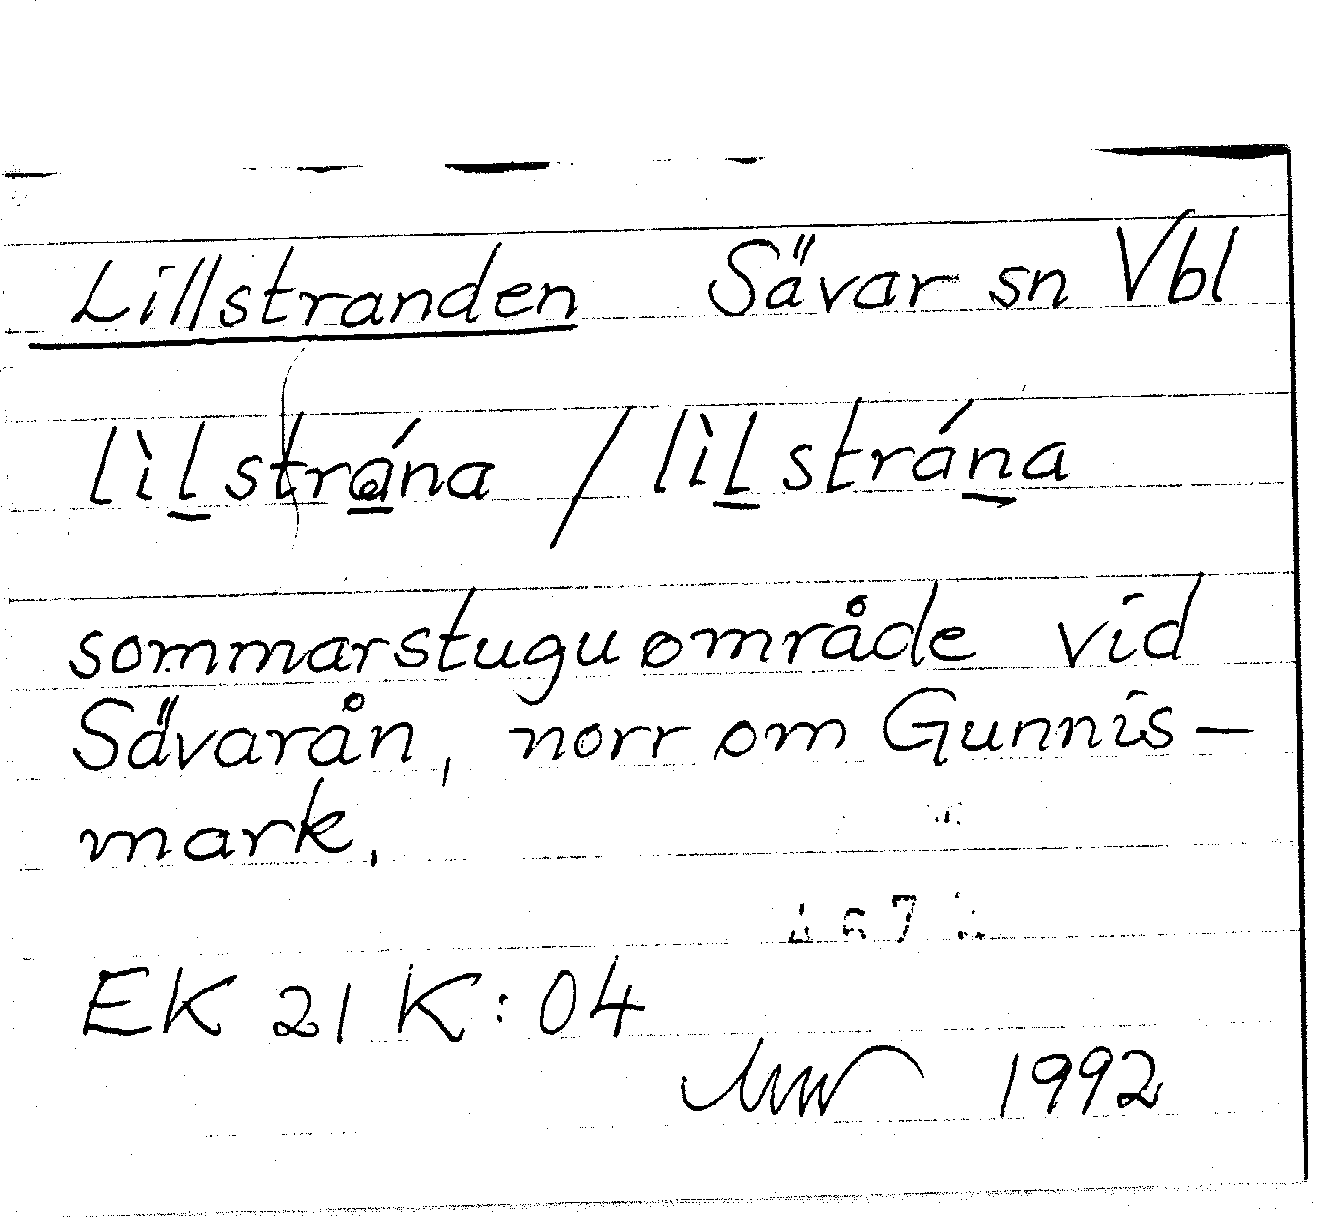 Lillstranden Sävar sn Vbl
lìl̲strá̲na / lìl̲strán̲a
sommarstuguområde vid
Sävarån, norr om Gunnis-
mark.
EK 21 K:04
1992